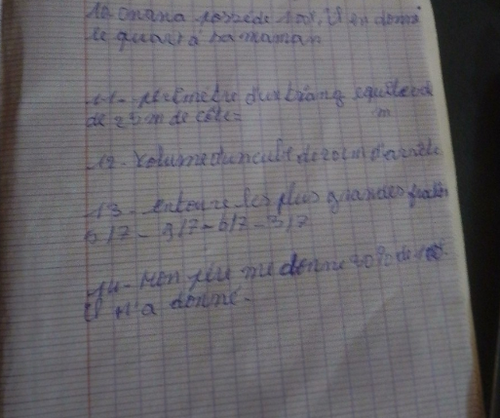 10 onana possède 100f, il en donne
le quart à sa maman
11- périmètre d'un triang equilateral
de 25 m de côté= m
12- Volume d'un cube de 20 cm d'arrête
13- entoure les plus grandes fraction
5/7 - 9/7 - 6/7 - 3/7
14- Mon père me donne 20% de
il m'a donné.